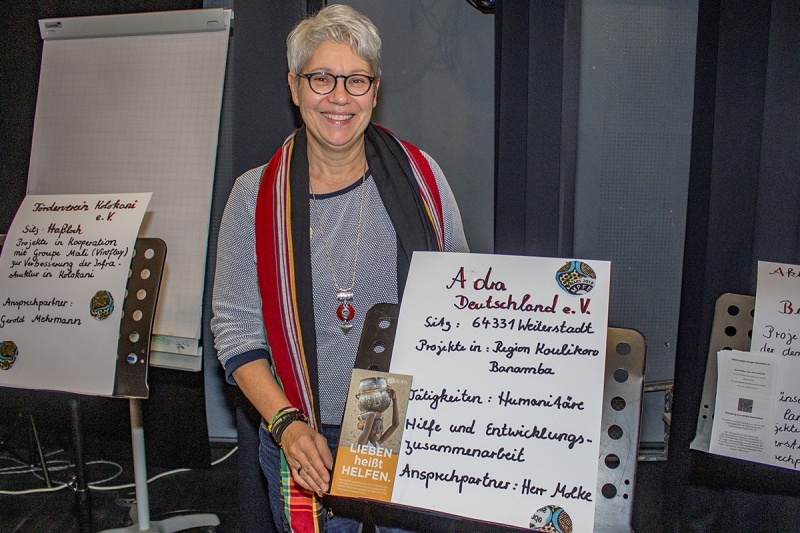 Förderverein Kolokani
e. V.
Sitz: Haßloh
Projekte in Kooperation
mit Groupe Mali (Viroflay)
zur Verbesserung der Infra-
struktur in Kolokani
Ansprechpartner:
Gerold Mehrmann
Ada
Deutschland e. V.
Sitz: 64331 Weiterstadt
Projekte in: Region Koulikoro
Banamba
Tätigkeiten: Humanitäre
Hilfe und Entwicklungs-
zusammenarbeit
Ansprechpartner: Herr Molke
LIEBEN
heißt
HELFEN.